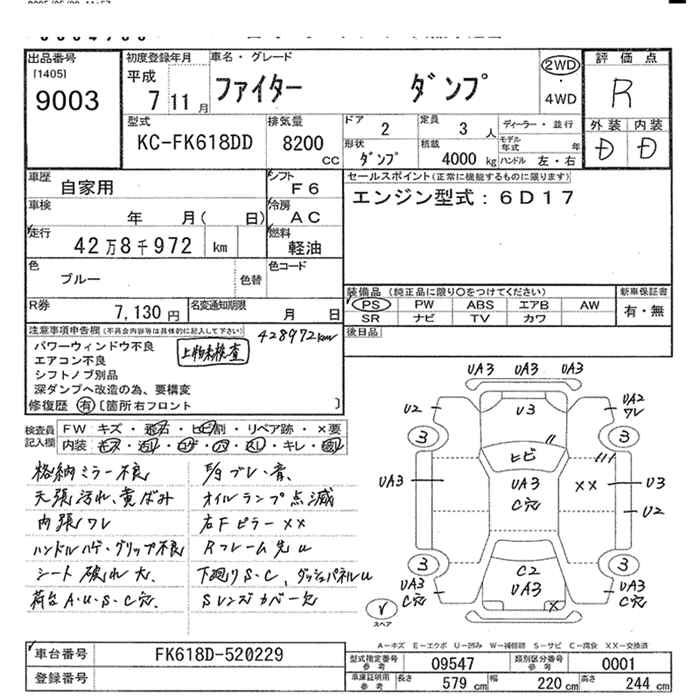 出品番号
[1405]
9003
初度登録年月
平成
7 11月
車名・グレード
ファイター ダンプ
2WD
・
4WD
評価点
R
外装 内装
D D
型式
KC-FK618DD
排気量
8200
CC
ドア
2
定員
3 人
ディーラー・並行
モデル年式 年
形状
ダンプ
積載
4000 kg
ハンドル 左・右
車歴
自家用
シフト
F6
車検
年 月( 日)
冷房
AC
走行
42万8千972 km
燃料
軽油
色
ブルー
色替
色コード
R券
7,130円
名変通知期限
月 日
セールスポイント(正常に機能するものに限ります)
エンジン型式:6D17
装備品(純正品に限り○をつけてください)
PS PW ABS エアB AW
SR ナビ TV カワ
新車保証書
有・無
後日品
注意事項申告欄(不具合内容等は具体的に記入して下さい)
428972km
パワーウィンドウ不良
エアコン不良
上物未検査
シフトノブ別品
深ダンプへ改造の為、要構変
修復歴 有 [箇所右フロント ]
検査員
記入欄
FW キズ・飛石・ヒビ割・リペア跡・×要
内装
キレ
格納ミラー不良
天張汚れ、黄ばみ
内張ワレ
ハンドルハゲ・グリップ不良
シート破れ大
荷台A・U・S・C穴
F/gブレ・音
オイルランプ点滅
右Fピラー××
Rフレーム先u
下廻りS・C、ダッシュパネルu
Sレンズカバー欠
UA3 UA3 UA3
U2
U3
UA2
ワレ
3
3
ヒビ
UA3
UA3
C穴
××
U3
U2
3
3
C2
UA3
×
UA3
C穴
UA3
C穴
スペア
A-キズ E-エクボ U-凹み W-補修跡 S-サビ C-腐食 XX-交換済
車台番号
FK618D-520229
登録番号
型式指定番号
参考
09547
類別区分番号
参考
0001
車庫証明用
参考
長さ 579 cm 幅 220 cm 高さ 244 cm